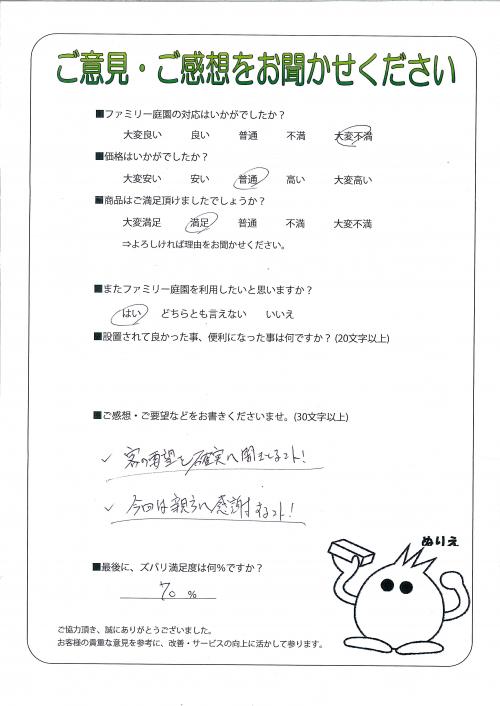 ご意見・ご感想をお聞かせください
■ファミリー庭園の対応はいかがでしたか？
大変良い 良い 普通 不満 大変不満
■価格はいかがでしたか？
大変安い 安い 普通 高い 大変高い
■商品はご満足頂けましたでしょうか？
大変満足 満足 普通 不満 大変不満
⇒よろしければ理由をお聞かせください。
■またファミリー庭園を利用したいと思いますか？
はい どちらとも言えない いいえ
■設置されて良かった事、便利になった事は何ですか？(20文字以上)
■ご感想・ご要望などをお書きくださいませ。(30文字以上)
✓ 客の要望を確実に聞
✓ 今回は 感謝
ぬりえ
■最後に、ズバリ満足度は何%ですか？
70 %
ご協力頂き、誠にありがとうございました。
お客様の貴重な意見を参考に、改善・サービスの向上に活かして参ります。